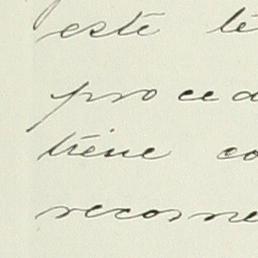 este té
proced
tiene co
recorre